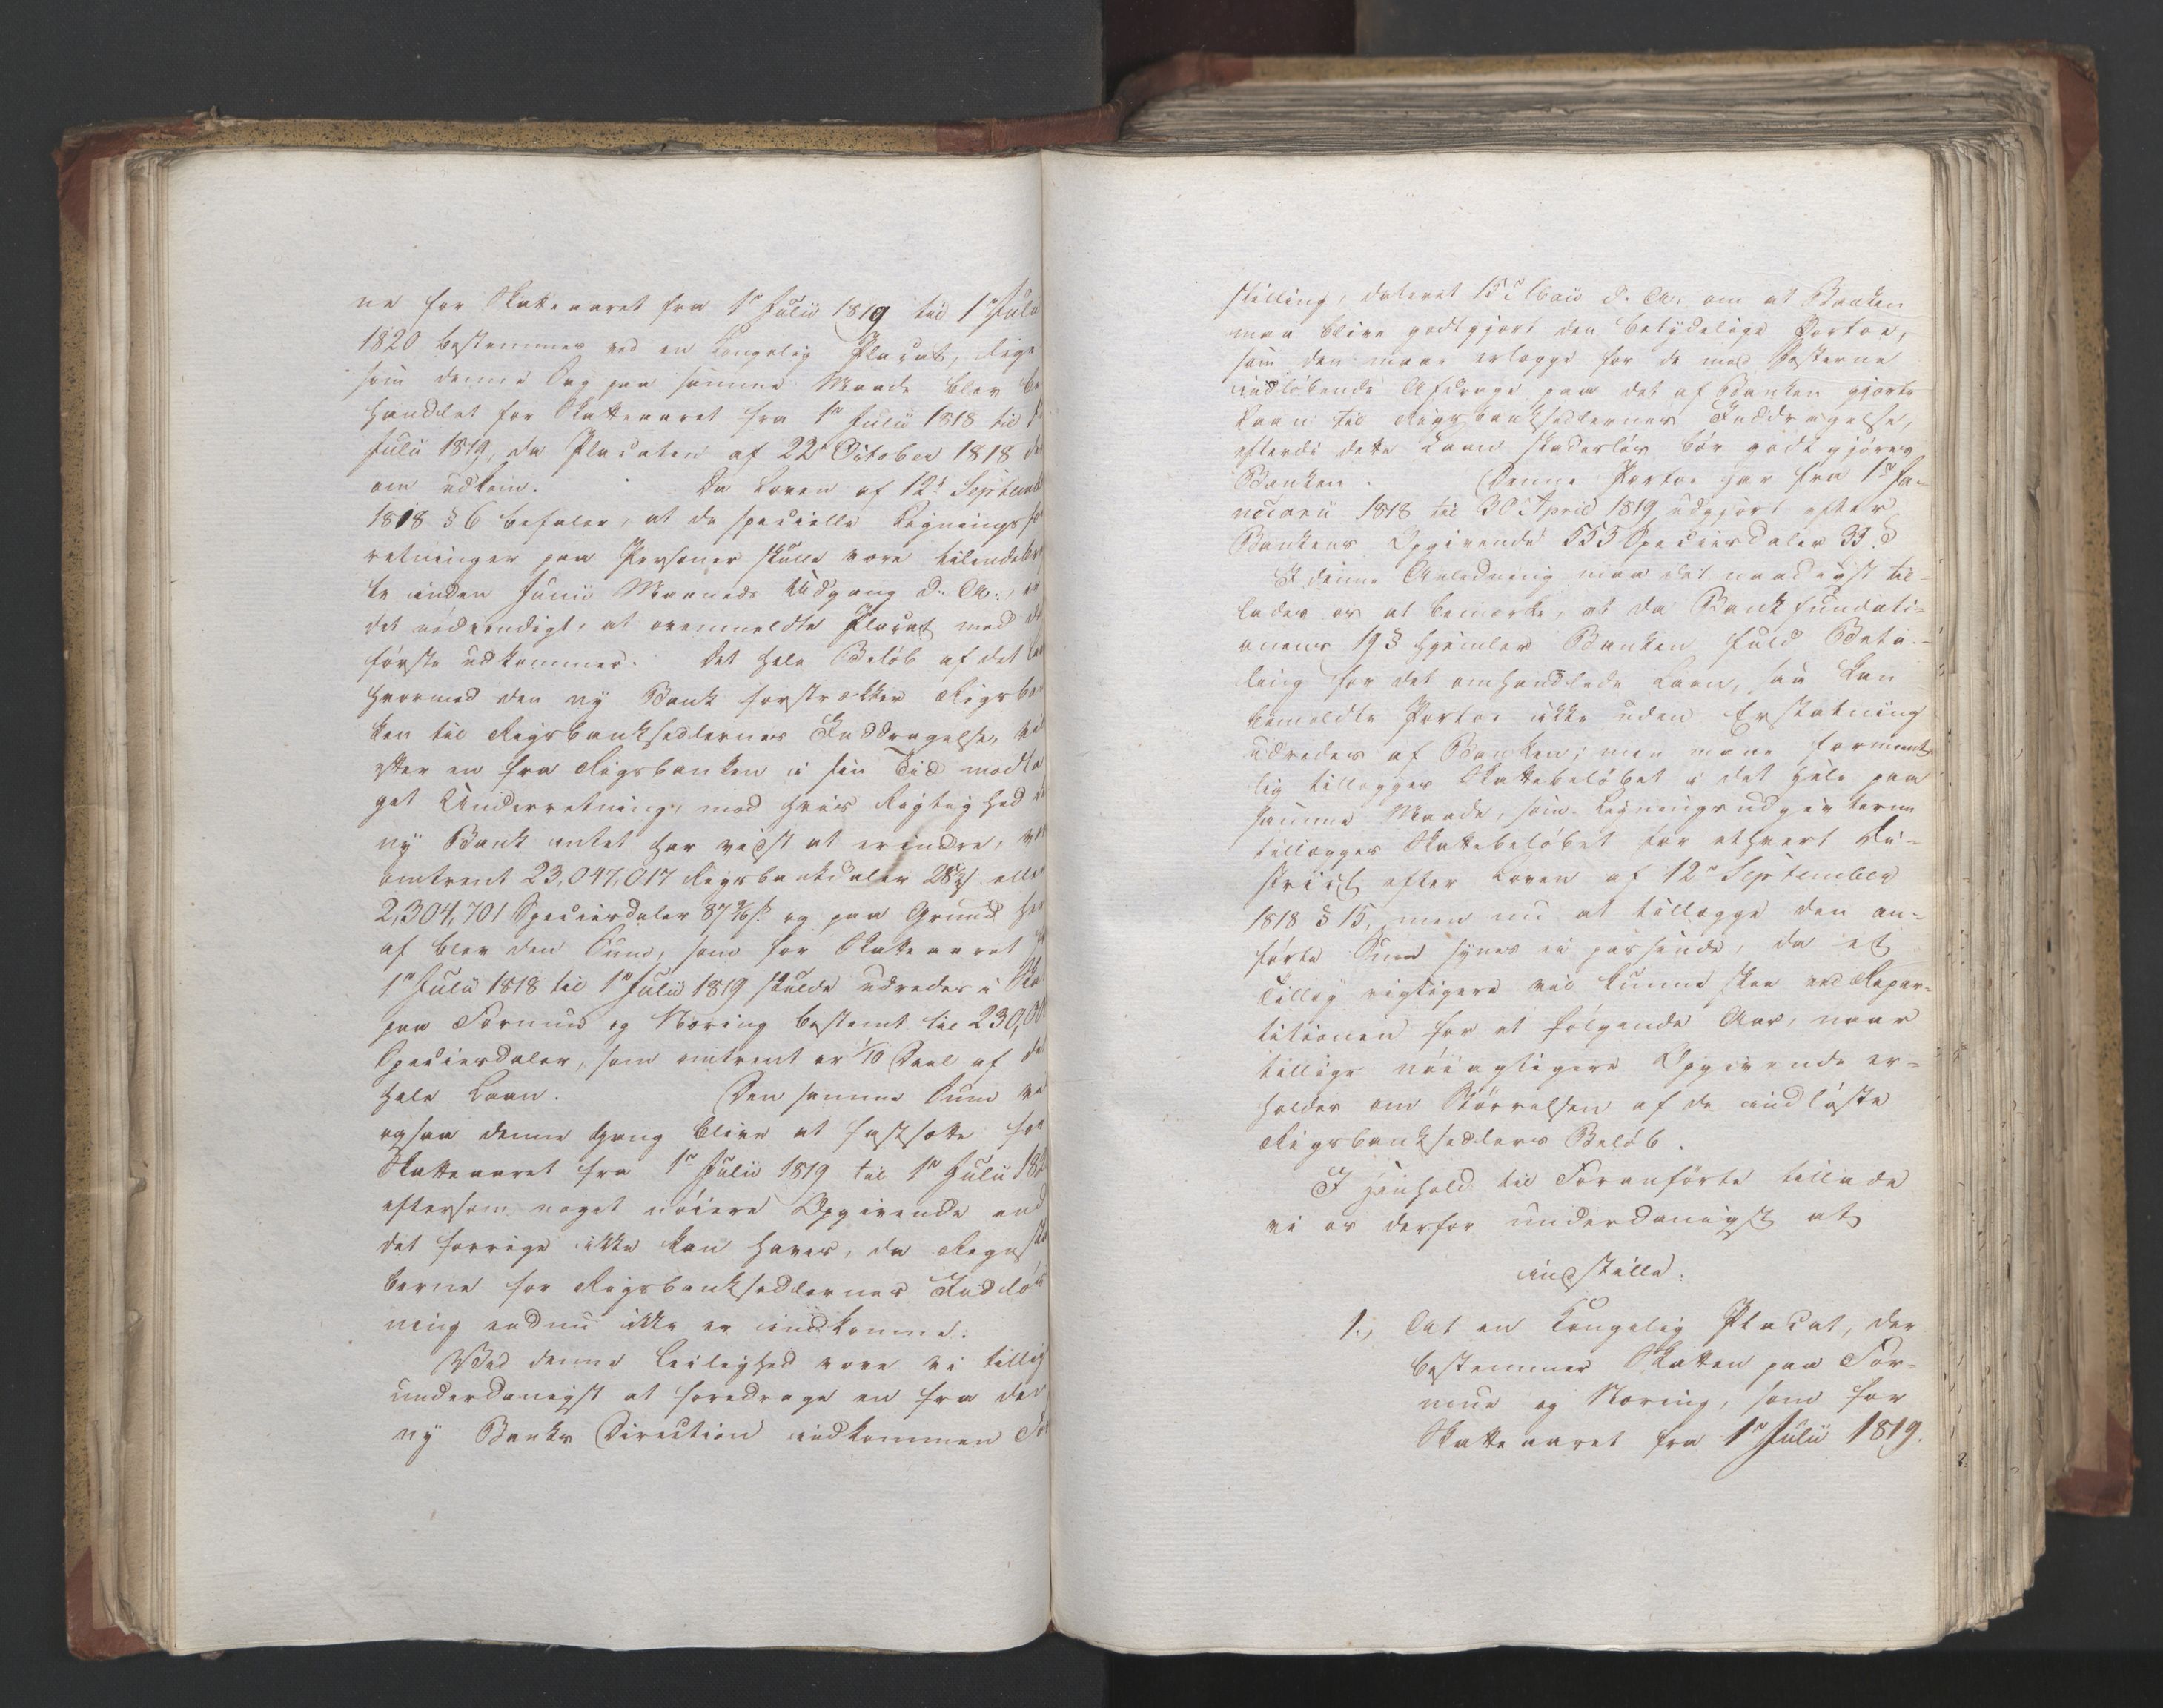 ne for Skatteaaret fra 1ste Julii 1819 til 1ste Julii
1820 bestemmes ved en Kongelig Placat, lige
som denne Sag paa samme Maade blev be
handlet for Skatteaaret fra 1ste Julii 1818 til
Julii 1819, da Placaten af 22de October 1818 der
om udkom. Da Loven af 12te Septemb
1818 § 6 befaler, at de specielle Ligningsfor
retninger paa Personer skulle være tilendebrag
te inden Junii Maaneds Udgang d. A., er
det nödvendigt, at ovenmeldte Placat med det
förste udkommer. Det hele Belöb af det Laan
hvormed den ny Bank forstrækker Rigsban
ken til Rigsbanksedlernes Inddragelse, vil
efter en fra Rigsbanken i sin Tid modta
get Underretning, mod hvis Rigtighed den
ny Bank intet har vidst at erindre,
omtrent 23,047,017 Rigsbankdaler 28 eller
2,304,701 Speciesdaler 87 og paa Grund her
af blev den Sum, som for Skatteaaret
1ste Julii 1818 til 1ste Julii 1819 skulde udredes i Skat
paa Formue og Næring bestemt til 230,000
Speciesdaler, som omtrent er 1/10 Deel af det
hele Laan. Den samme Sum
ogsaa denne Gang blive at fastsætte for
Skatteaaret fra 1ste Julii 1819 til 1ste Julii 1820
eftersom noget nöiere Opgivende end
det forrige ikke kan haves, da Regnska
berne for Rigsbanksedlernes Indlös
ning endnu ikke er indkomne.
Ved denne Leilighed vove vi tillige
underdanigst at foredrage en fra den
ny Banks Direction indkommen Fore
stilling, dateret 15de Maii d. A. om at Banken
maa blive godtgjort den betydelige Portoe,
som den maae erlægge for de med Posterne
indlöbende Afdrage paa det af Banken gjorte
Laan til Rigsbanksedlernes Inddragelse,
efterdi dette Laan skadeslös bör godtgjöres
Banken. Denne Portoe har fra 1ste Ja-
nuarii 1818 til 30 April 1819 udgjort efter
Bankens Opgivende 553 Speciesdaler 33 s
I denne Anledning maa det naadigst til-
lades os at bemærke, at da Bankfundati-
onens 19 § hjemler Banken fuld Beta-
ling for det omhandlede Laan, saa kan
bemeldte Portoe ikke uden Erstatning
udredes af Banken; men maae forment-
lig tillægges Skattebelöbet i det Hele paa
samme Maade, som Ligningsudgivterne
tillægges Skattebelöbet for ethvert Di-
strict efter Loven af 12te September
1818 § 15, men nu at tillægge den an-
förte Sum synes ei passende, da et
Tillæg rigtigere vil kunne skee ved Repar-
titionen for et fölgende Aar, naar
tillige nöiagtigere Opgivende er-
holdes om Störrelsen af de indlöste
Rigsbanksedlers Belöb.
I Henhold til Foranförte tillade
vi os derfor underdanigst at
indstille:
1., At en Kongelig Placat, der
bestemmer Skatten paa For-
mue og Næring, som for
Skatteaaret fra 1ste Julii 1819.